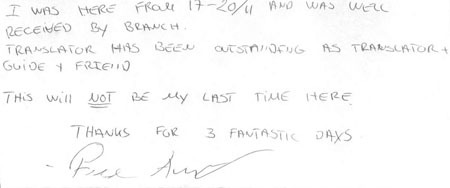 I WAS HERE FROM 17-20/11 AND WAS WELL
RECEIVED BY BRANCH.
TRANSLATOR HAS BEEN OUTSTANDING AS TRANSLATOR +
GUIDE + FRIEND
THIS WILL NOT BE MY LAST TIME HERE
THANKS FOR 3 FANTASTIC DAYS